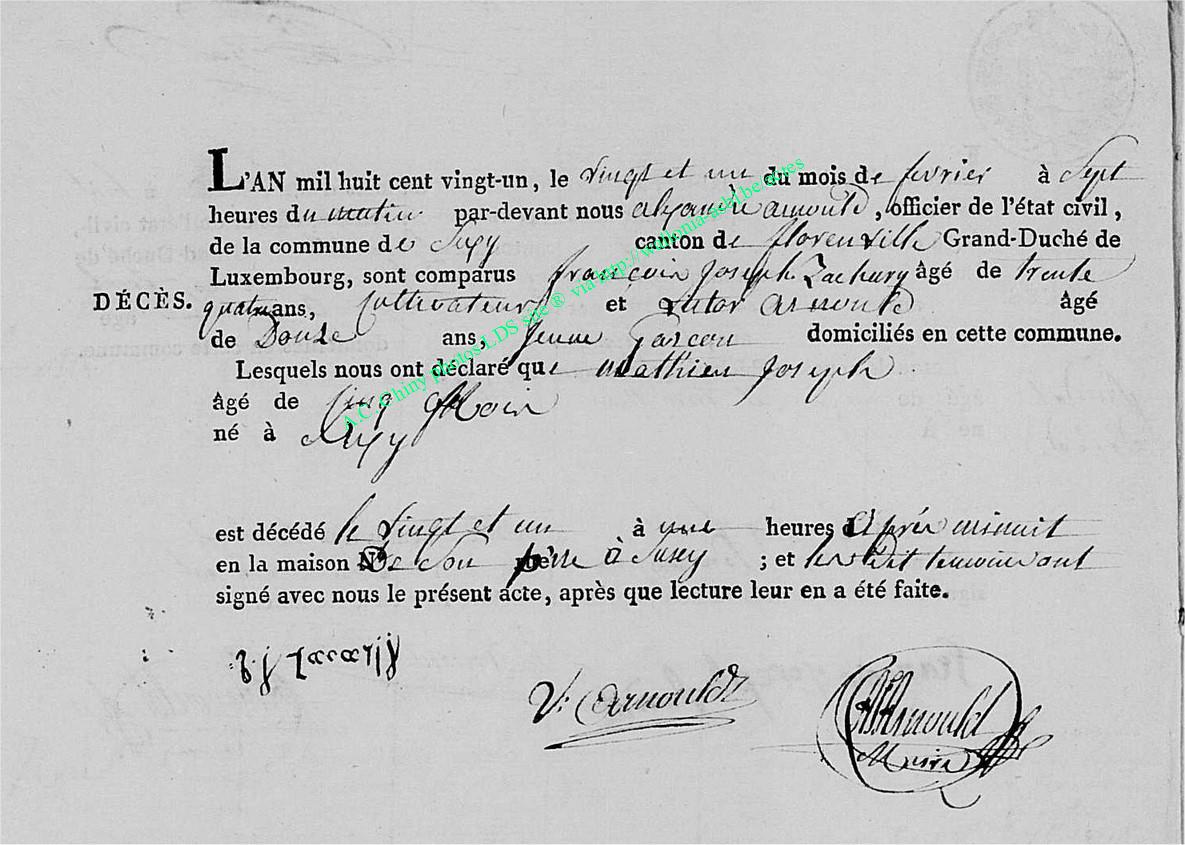 L'AN mil huit cent vingt-un, le vingt et un du mois de fevrier à Sept
heures du matin par-devant nous alexandre arnould, officier de l'état civil,
de la commune de Suxy canton de florenville Grand-Duché de
Luxembourg, sont comparus francois Joseph Zachary âgé de trente
DÉCÈS. quatre ans, Cultivateur et Victor arnould âgé
de Douze ans, Jeune Garcon domiciliés en cette commune.
Lesquels nous ont déclaré que mathieu Joseph
âgé de Cinq Mois
né à Suxy
est décédé le vingt et un à une heures après minuit
en la maison De son père à Suxy ; et les Dit temoins ont
signé avec nous le présent acte, après que lecture leur en a été faite.
V: Arnould
Arnould
Maire
A.C. Chiny photos LDS site® via http://wallonia-asbl.be/actes